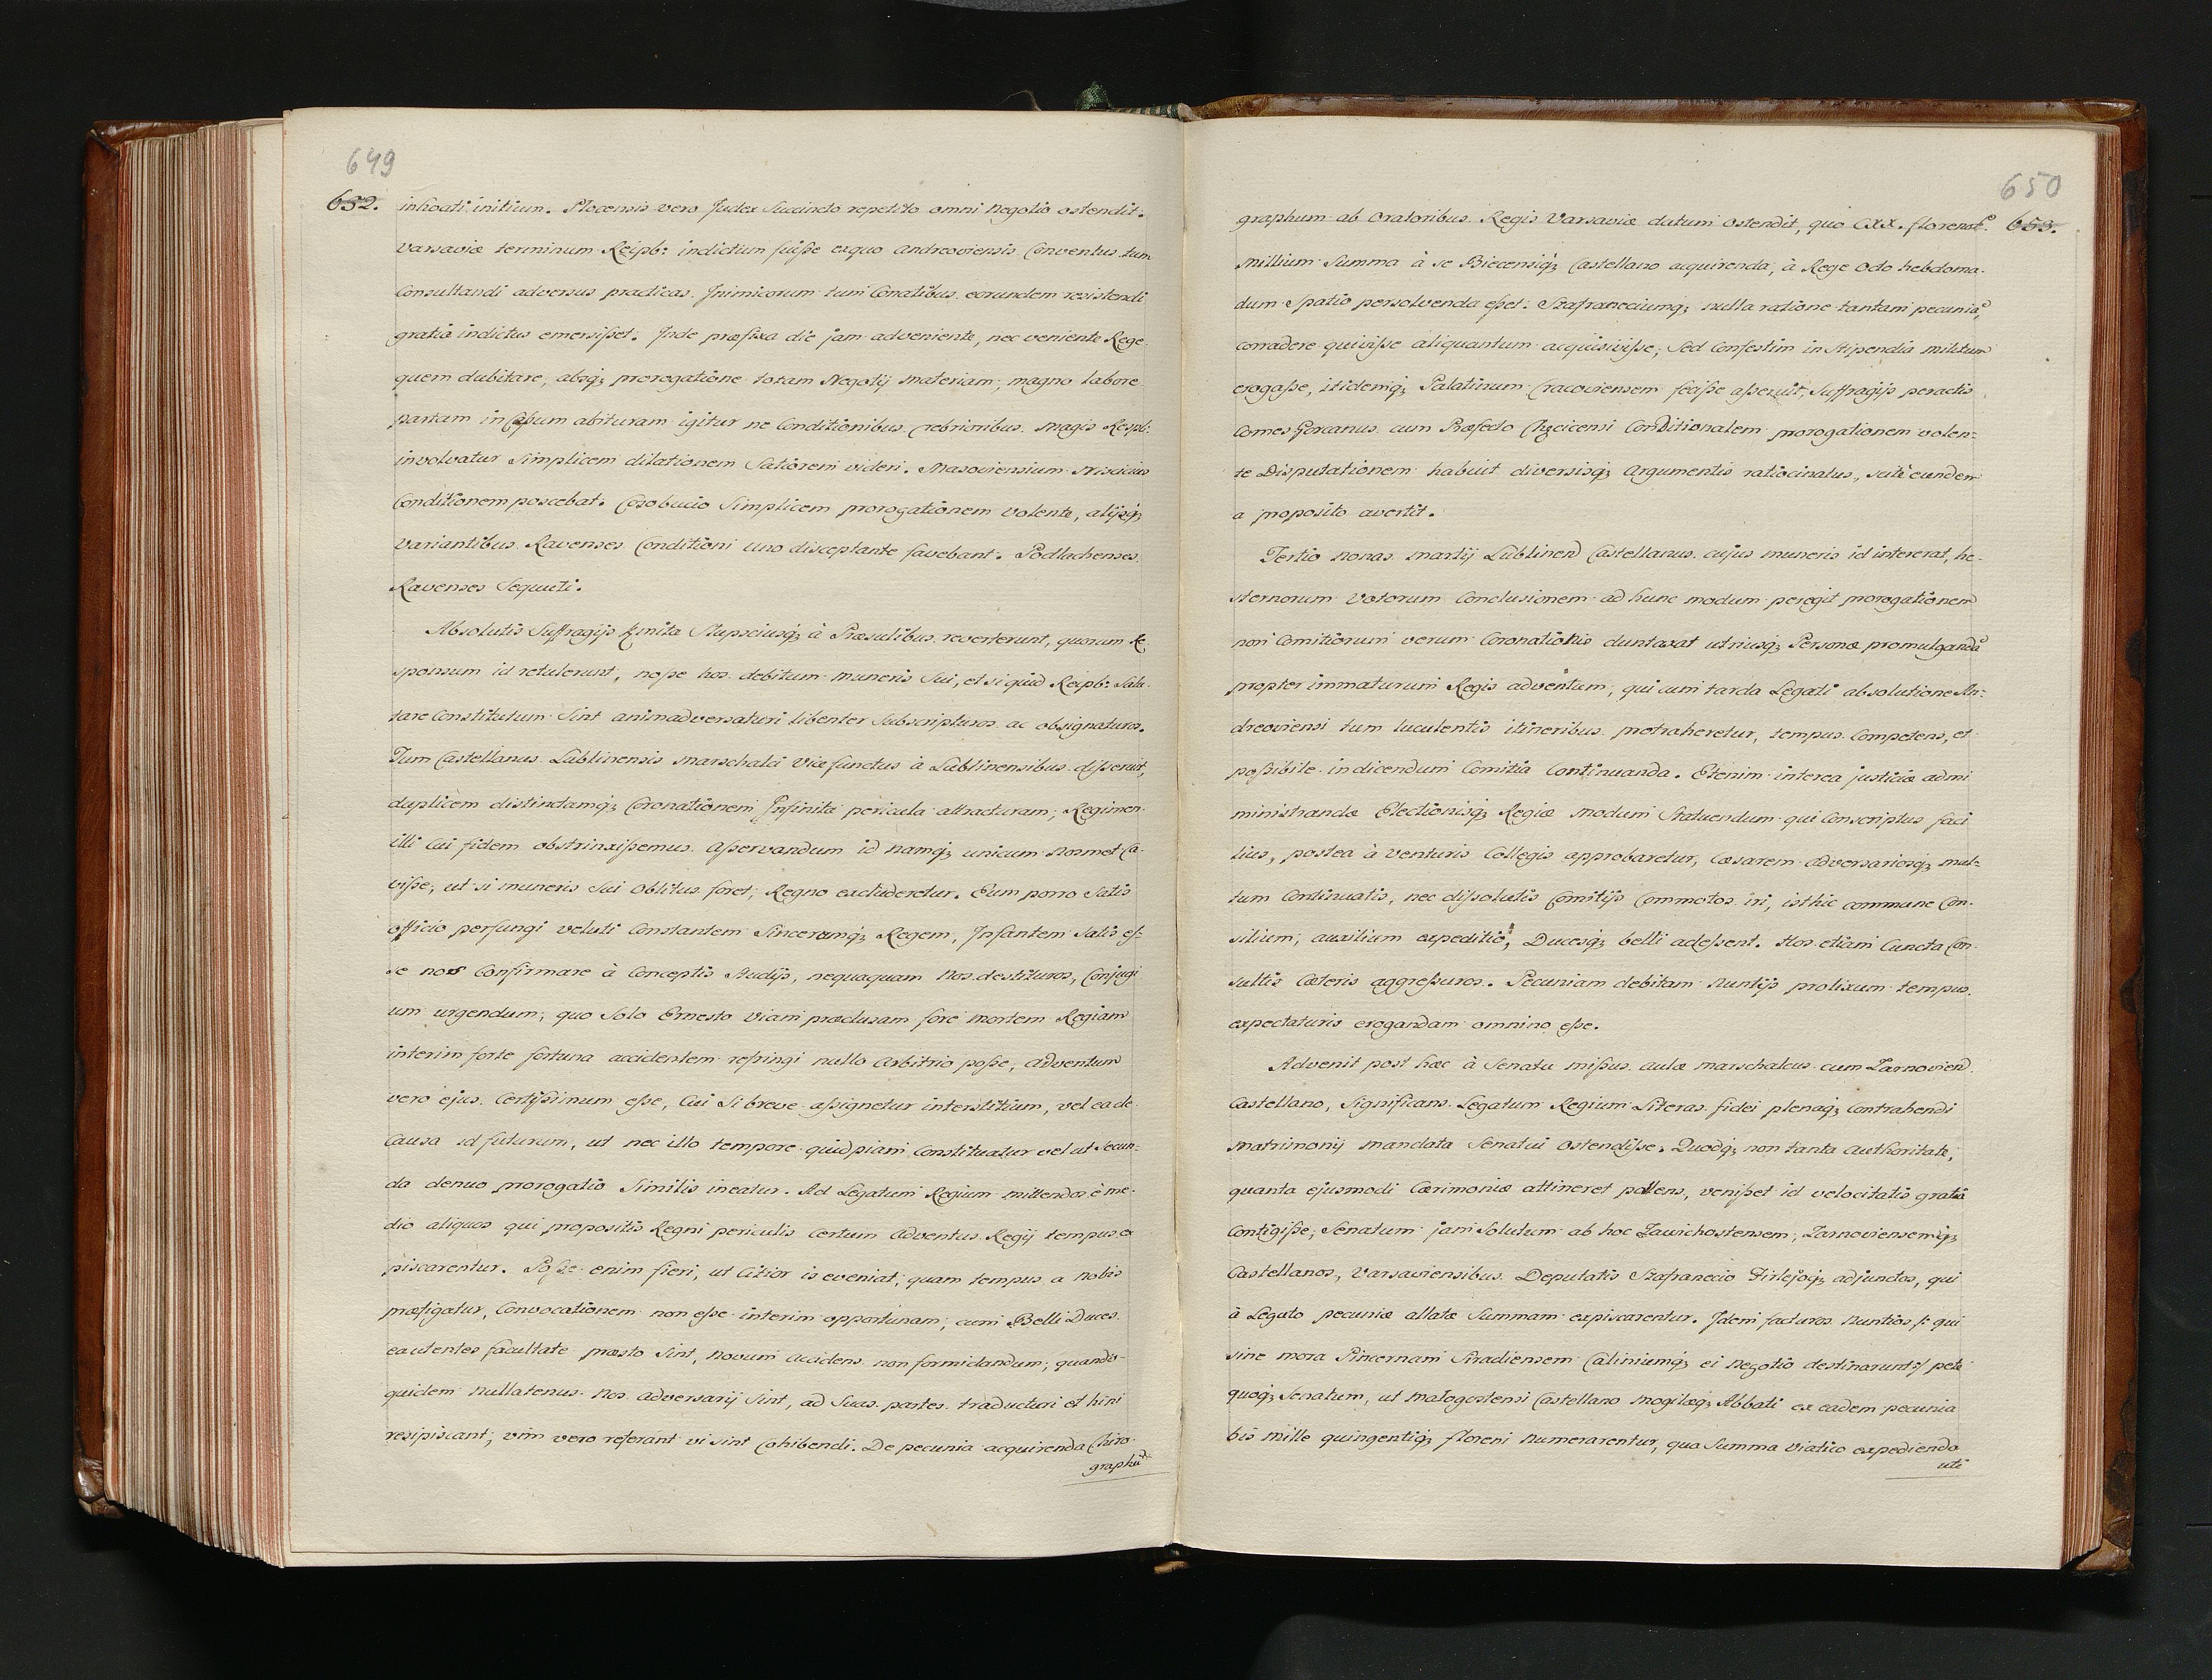 649
652.
inhoati initium. Plocensis vero Judex Succincto repetito omni Negotio ostendit.
Varsaviæ terminum Reipb: indictum fuiſse exquo Andreoviensis Conventus tum
Consultandi adversus practicas Inimicorum tum Conatibus eorundem resistendi
gratiâ indictus emersiſset. Inde præfixa die jam adveniente, nec veniente Rege
quem dubitare, absq; prorogatione totam Negotij materiam, magno labore
partam in Caſsum abituram igitur ne Conditionibus crebrioribus magis Respb:
involvatur Simplicem dilationem Satiorem videri. Masoviensium
Conditionem poscebat. Cosobucio Simplicem prorogationem volente, alijsq;
Variantibus Ravenses Conditioni uno disceptante favebant. Podlachenses
Ravenses Sequuti.
Absolutis Suffragijs Kmita Stupsciusq; à Præsulibus reverterunt, quorum Re
sponsum id retulerunt, noſse hos debitum muneris Sui, et si quid Reipb: Salu
tare Constitutum Sint animadversaturi libenter Subscripturos ac obsignaturos.
Tum Castellanus Lublinensis marschalci vice functus à Lublinensibus diſseruit,
duplicem distinctamq; Coronationem Infinita pericula attracturam; Regimen
illi Cui fidem obstrinxiſsemus Aſservandum id namq; unicum Nosmet Ca-
viſse, ut si muneris Sui Oblitus foret, Regno excluderetur. Eum porro Satis
officio perfungi veluti Constantem Sinceramq; Regem, Infantem Satis eſ:
se nos Confirmare à Conceptis Studijs, nequaquam Nos destituros, Conjugi
um urgendum, quo Solo Ernesto Viam præclusam fore Mortem Regiam
interim forte fortuna accidentem refringi nullo Arbitrio poſse, Adventum
vero ejus Certiſsimum eſse, Cui Si breve aſsignetur interstitium, vel ea de
Causa id futurum, ut nec illo tempore quidpiam Constituatur vel ut Secun=
da denuo prorogatio Similis ineatur. Ad Legatum Regium mittendos è me-
dio aliquos qui propositis Regni periculis Certum Adventus Regij tempus ex
piscarentur. Poſse enim fieri, ut Citior is eveniat, quam tempus a Nobis
præfigatur, Convocationem non eſse interim opportunam, cum Belli Duces
ea utentes facultate præsto Sint, Novum Accidens non formidandum, quando-
quidem Nullatenus Nos Adversarij Sint, ad Suas partes traducturi et hini
resipiscant, vim vero referant vi sint Cohibendi. De pecunia acquirenda Chiro
graphū
650
653.
graphum ab Oratoribus Regis Varsaviæ datum Ostendit, quo CXX. florenor̃
Millium Summa à se Biecensiq; Castellano acquirenda, à Rege Octo hebdoma-
dum Spatio persolvenda eſset. Szafraneciumq; nulla ratione tantam pecuniā
corradere quiviſse aliquantum acquisiviſse; Sed Confestim in Stipendia militum
erogaſse, itidemq; Palatinum Cracoviensem feciſse aſseruit, Suffragijs peractis
Comes Gorcanus cum Præfecto Chęcicensi Conditionalem prorogationem volen=
te Disputationem habuit diversisq; Argumentis ratiocinatus, scitè eundem
a proposito avertit.
Tertio Nonas Martij Lublinen Castellanus cujus muneris id intererat, he-
sternorum Votorum Conclusionem ad hunc modum peregit prorogationem
non Comitiorum verum Coronationis duntaxat utriusq; Personæ promulgandā
propter immaturum Regis adventum, qui cum tarda Legati absolutione An=
dreoviensi tum luculentis itineribus protraheretur, tempus Competens, et
poſsibile indicendum Comitia Continuanda. Etenim interea justiciæ admi
ministrandæ Electionisq; Regiæ modum Statuendum qui Conscriptus faci
lius, postea à Venturis Collegis approbaretur, Cæsarem Adversariosq; mul=
tum Continuatis, nec diſsolutis Comitijs Commotos iri, isthic commune Con-
silium, auxilium expeditio, Ducesq; belli adeſsent. Hos etiam Cuncta Con-
sultis Cæteris aggreſsuros. Pecuniam debitam Nuntijs prolixum tempus
expectaturis erogandam omnino eſse.
Advenit post hæc à Senatu miſsus aulæ marschalcus cum Zarnovien
Castellano, Significans Legatum Regium Literas fidei plenaq; Contrahendi
Matrimonij mandata Senatui Ostendiſse. Quodq; non tanta Authoritate,
quanta ejusmodi Cærimoniæ attineret pollens, veniſset id velocitatis gratiâ
Contigiſse; Senatum jam Solutum ab hoc Zawichostensem, Zarnoviensemq;
Castellanos, Varsaviensibus Deputatis Szafranecio Firlejoq; adjunctos, qui
à Legato pecuniæ allatæ Summam expiscarentur. Idem facturos Nuntios /: qui
sine mora Pincernam Siradiensem Caliniumq; ei Negotio destinarunt :/ peti
quoq; Senatum, ut Małogostensi Castellano Mogilæq; Abbati ex eadem pecunia
bis mille quingentiq; floreni Numerarentur, qua Summa Viatico expediendo
uti